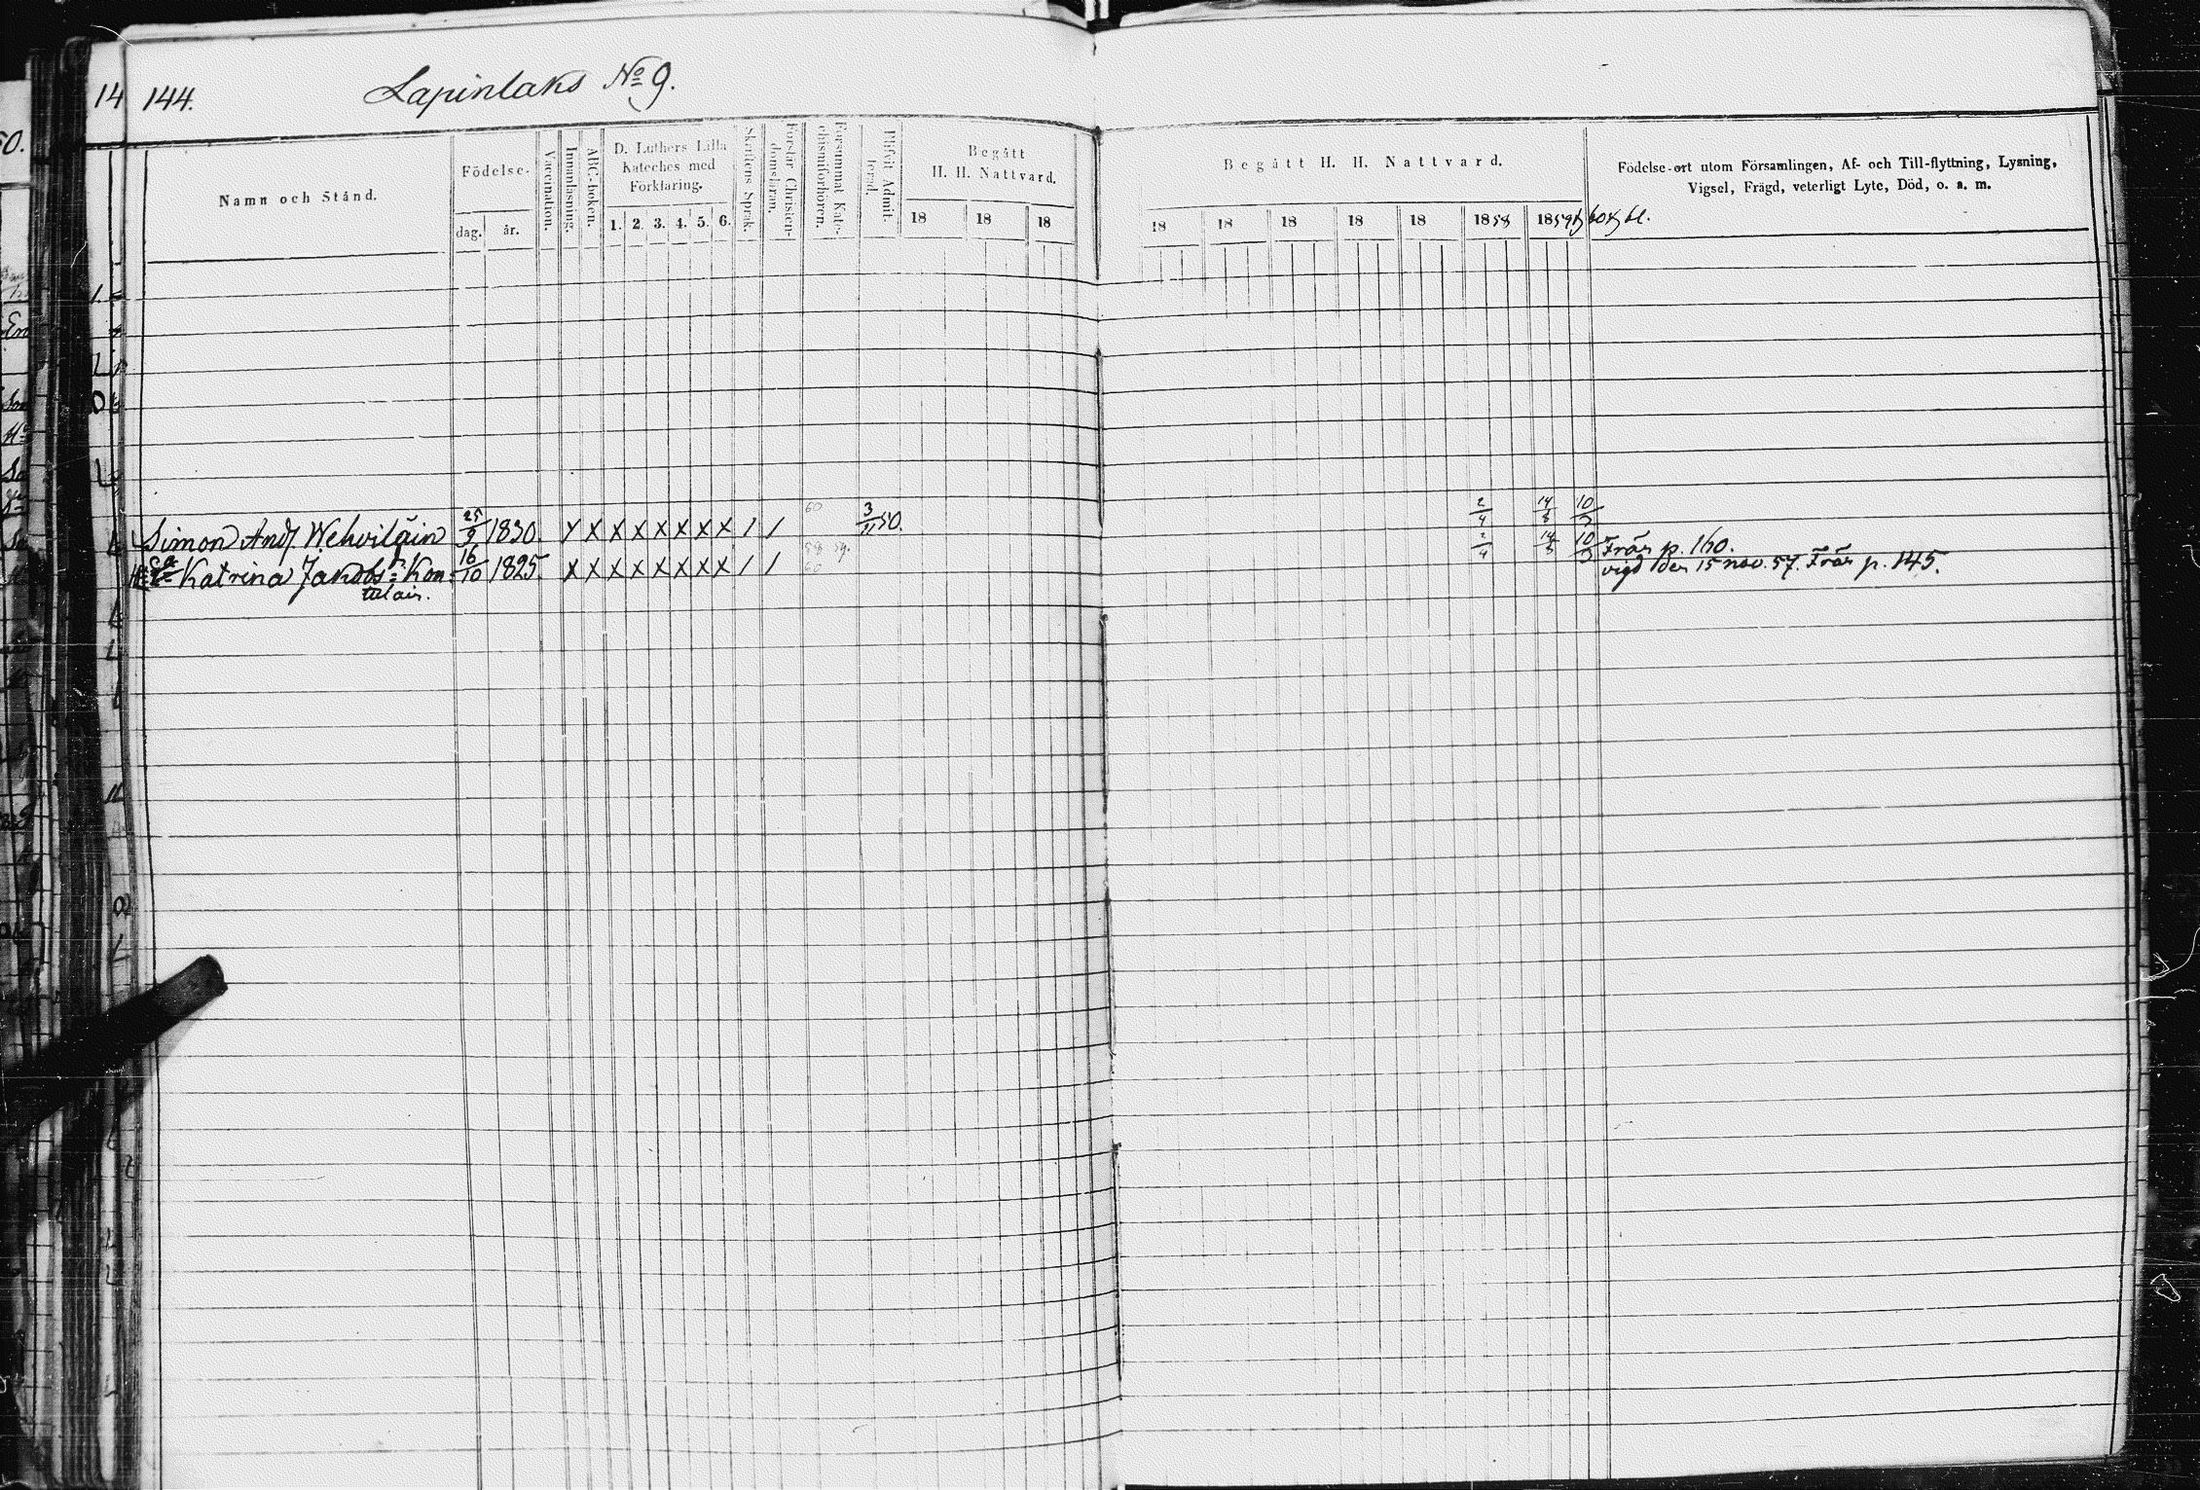 144.
Lapinlaks No 9.
Namn och Stånd.
Födelse-
dag.
år.
Vaccination.
Innanläsning.
ABC-boken.
D. Luthers Lilla
Kateches med
Förklaring.
1. 2. 3. 4. 5. 6.
Skriftens Språk.
Förstår Christen-
domsläran.
Försummat Kate-
chismiförhören.
Blifvit Admit-
terad.
Begått
H. H. Nattvard.
18 18 18
Begått H. H. Nattvard.
18 18 18 18 18 1858 1859 60 61.
Födelse-ort utom Församlingen, Af- och Till-flyttning, Lysning,
Vigsel, Frägd, veterligt Lyte, Död, o. a. m.
Simon And. Wehviläin 25/9 1830. x x x x x x x x / / 60 3/11 50. 2/4 14/8 10/3 Från p. 160.
Katrina Jakobs: Kon- 16/10 1825. x x x x x x x x / / 58 59. 60 2/4 14/8 10/3 vigd den 15 nov. 57. Från p. 145.